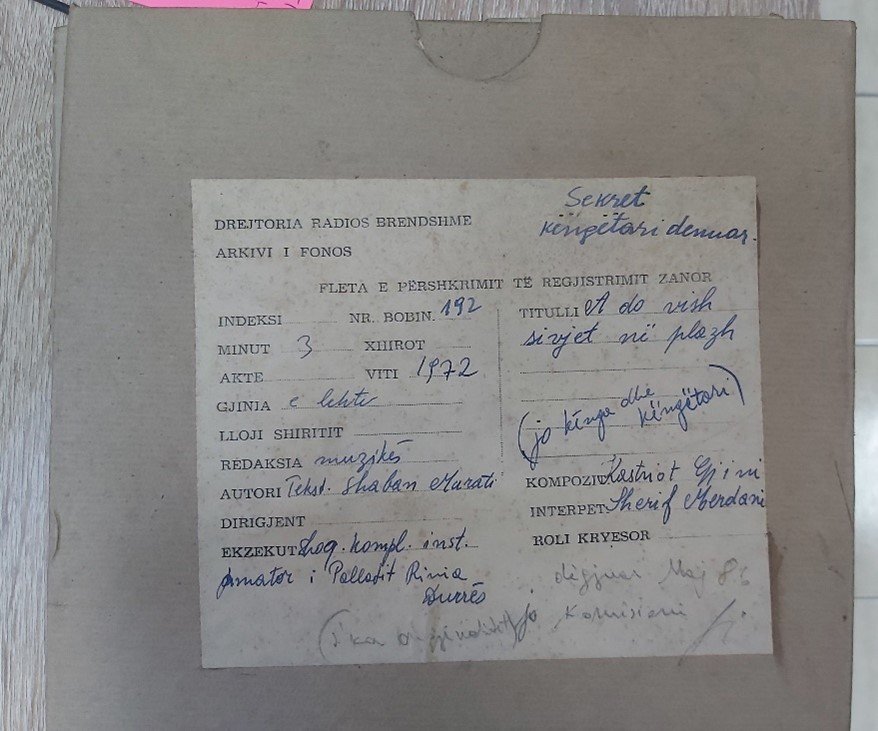 Sekret
këngëtari denuar.
DREJTORIA RADIOS BRENDSHME
ARKIVI I FONOS
FLETA E PËRSHKRIMIT TË REGJISTRIMIT ZANOR
INDEKSI NR. BOBIN. 192
MINUT 3 XHIROT
AKTE VITI 1972
GJINIA e lehtë
LLOJI SHIRITIT
REDAKSIA muzikës
AUTORI Tekst. Shaban Murati
DIRIGJENT
EKZEKUT Shoq. kompl. inst.
amator i Pallatit Rinia
Durrës
TITULLI A do vish
sivjet në plazh
(jo kënga dhe
këngëtari)
KOMPOZIT Kastriot Gjini
INTERPET Sherif Merdani
ROLI KRYESOR
dëgjuar Maj 86
(s'ka jo Komisioni